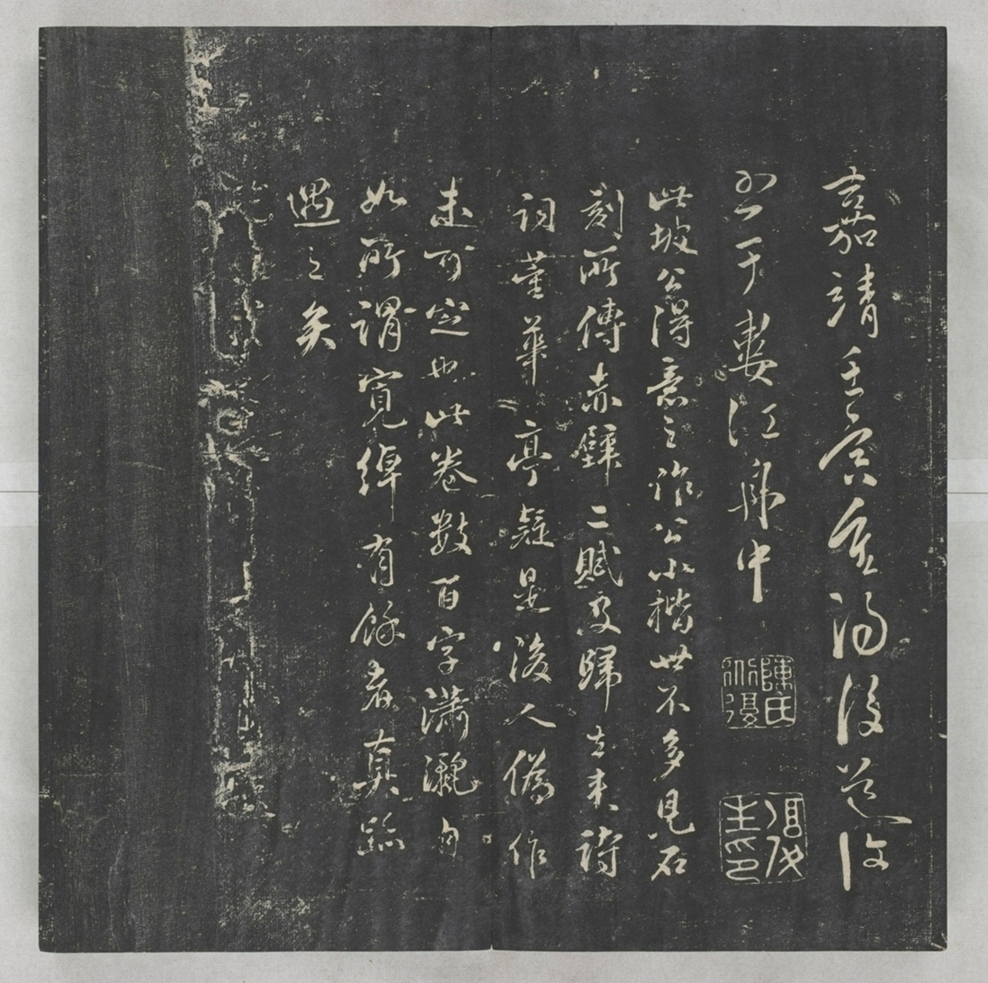 嘉靖壬寅重陽後道復
書于婁江舟中
陳氏道復
此坡公得意之作公小楷世不多見石
刻所傳赤壁二賦及歸去来詩
詞葦華亭疑是後人偽作
未可定也此卷數百字瀟灑自
如所謂寬綽有餘者真跡
遇之矣